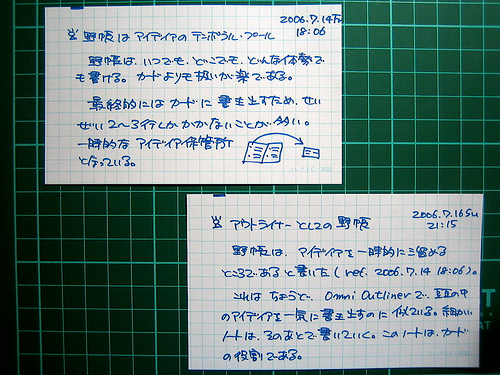 2006.7.14 Fr
18:06
野帳は アイディアの テンポラル・プール
野帳は、いつでも、どこでも、どんな体勢で
も書ける。カードよりも扱いが楽である。
最終的には カードに 書き出すため、せい
ぜい 2〜3行しか かかないことが 多い。
一時的な アイディア保管所
となっている。
2006.7.16 Su
21:15
アウトライナー としての 野帳
野帳は、アイディアを 一時的に 溜める
ところであると書いた ( ref. 2006.7.14 18:06 )。
これは ちょうど、Omni Outliner で、頭の中
のアイディアを一気に 書き出すのに 似ている。細かい
ノートは、そのあとで 書いていく。このノートは、カード
の役割である。